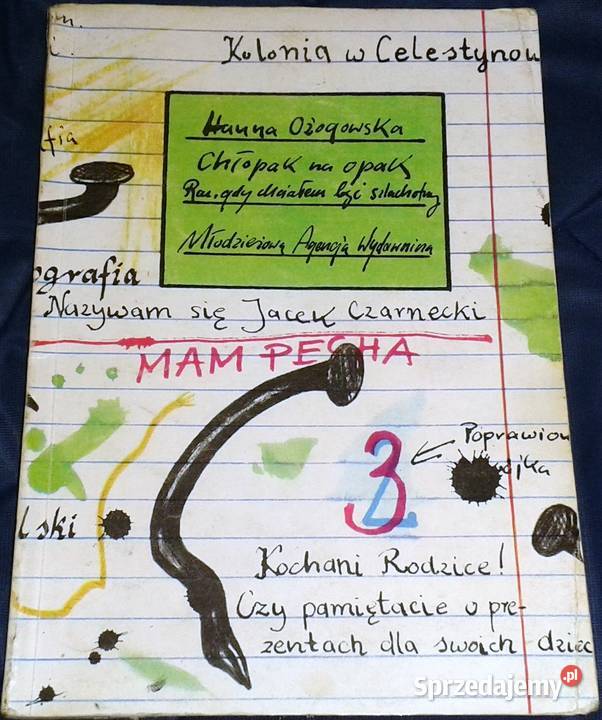 Kolonia w Celestynow
fia
Hanna Ożogowska
Chłopak na opak
Raz, gdy chciałem być szlachetny
Młodzieżowa Agencja Wydawnicza
ografia
Nazywam się Jacek Czarnecki
MAM PECHA
3
2
Poprawion
ójka
lski
Kochani Rodzice!
Czy pamiętacie o pre-
zentach dla swoich dziec
Sprzedajemy.pl